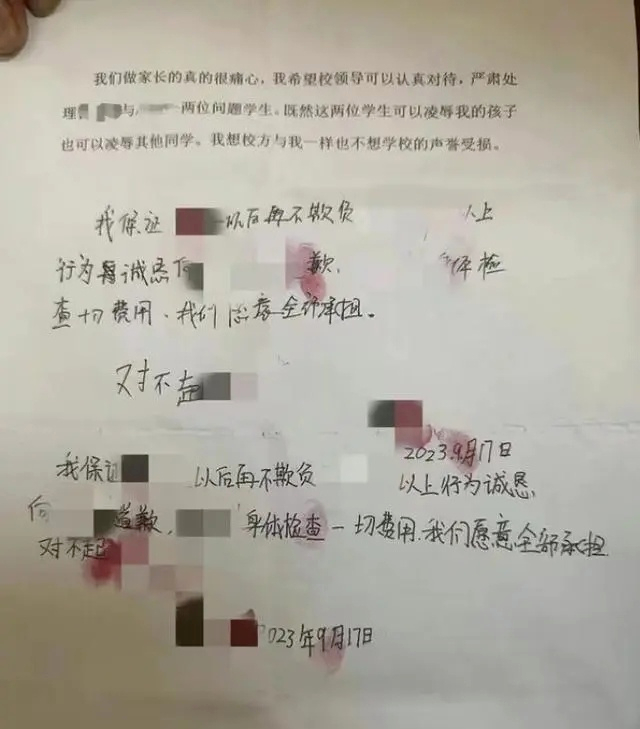 我们做家长的真的很痛心，我希望校领导可以认真对待，严肃处
理 与 两位问题学生。既然这两位学生可以凌辱我的孩子
也可以凌辱其他同学。我想校方与我一样也不想学校的声誉受损。
我保证 以后再不欺负 以上
行为 诚恳向 歉， 体检
查切费用、我们愿意全部承担。
对不起
2023.9月17日
我保证 以后再不欺负 以上行为诚恳
向 道歉， 身体检查一切费用，我们愿意全部承担
对不起
2023年9月17日